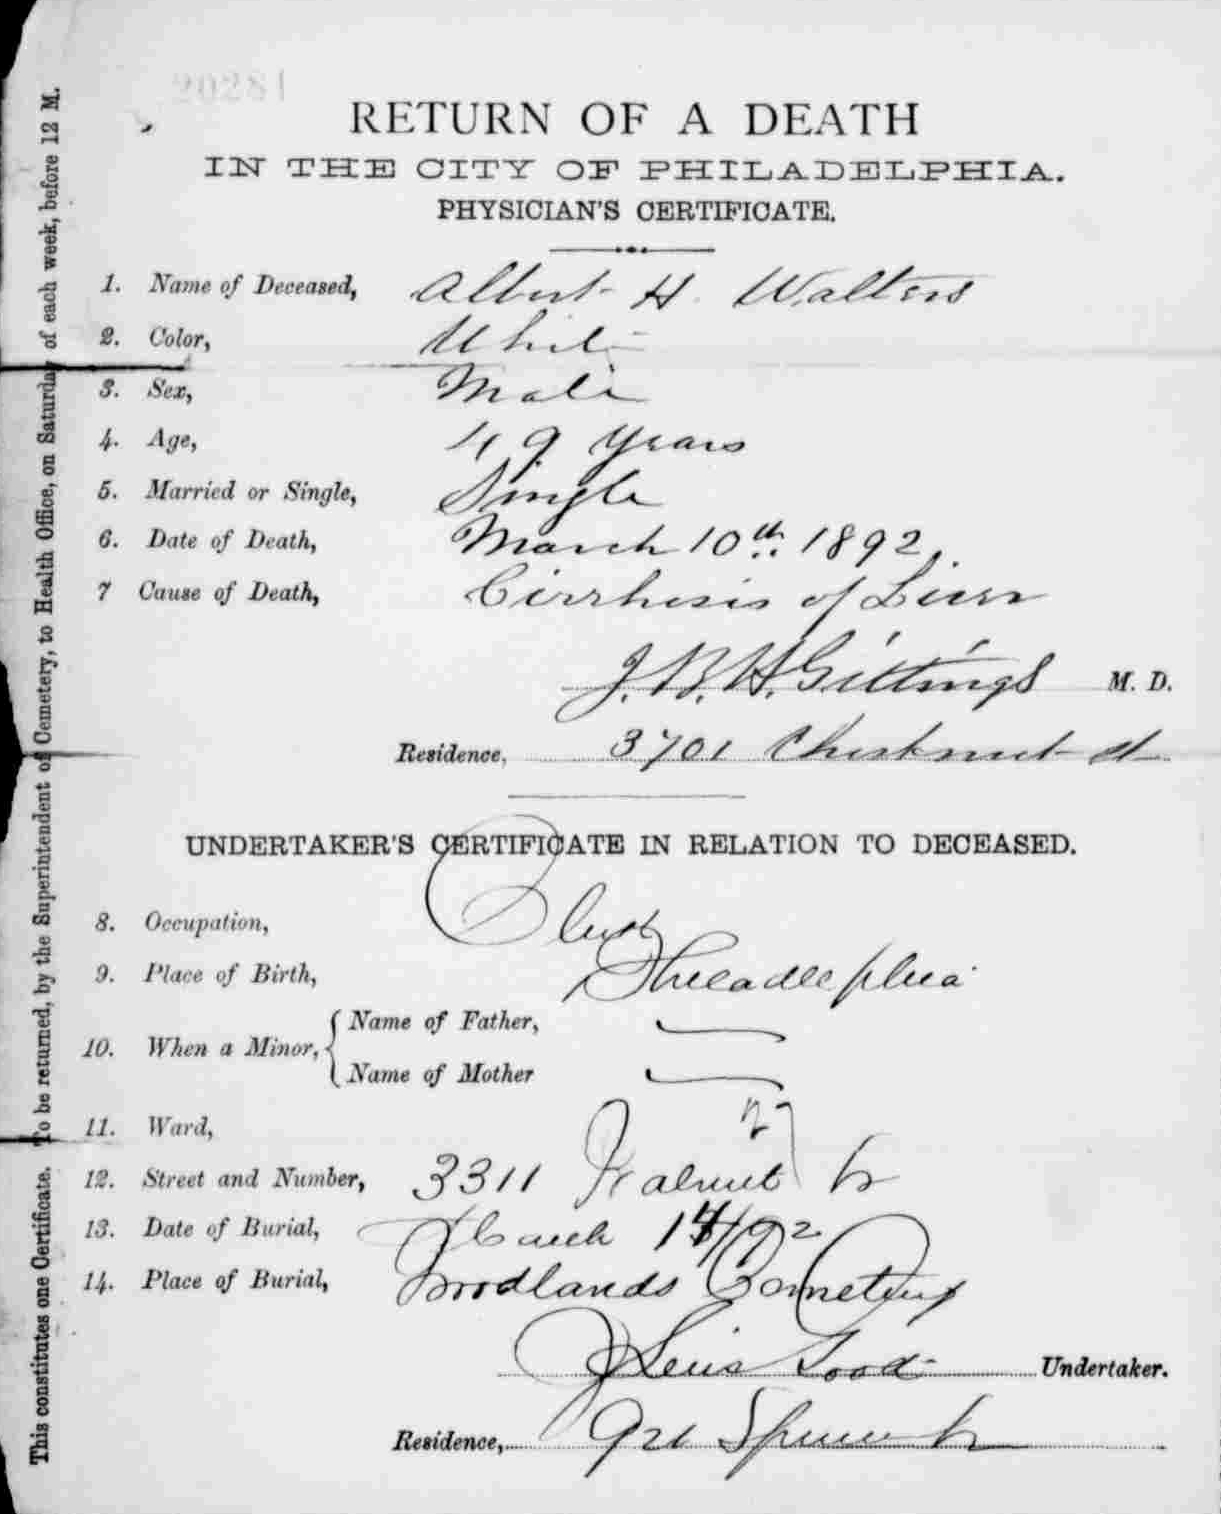 20281
RETURN OF A DEATH
IN THE CITY OF PHILADELPHIA.
PHYSICIAN'S CERTIFICATE.
1. Name of Deceased, Albert H. Walters
2. Color, White
3. Sex, Male
4. Age, 49 years
5. Married or Single, Single
6. Date of Death, March 10th 1892.
7 Cause of Death, Cirrhosis of Liver
J. B. H. Gittings M. D.
Residence, 3701 Chestnut st
UNDERTAKER'S CERTIFICATE IN RELATION TO DECEASED.
8. Occupation, Clerk
9. Place of Birth, Philadelphia
10. When a Minor, Name of Father,
Name of Mother
11. Ward, 27
12. Street and Number, 3311 Walnut St
13. Date of Burial, March 14/92
14. Place of Burial, Woodlands Cemetery
Good Undertaker.
Residence, 921 Spruce St
This constitutes one Certificate. To be returned, by the Superintendent of Cemetery, to Health Office, on Saturday of each week, before 12 M.